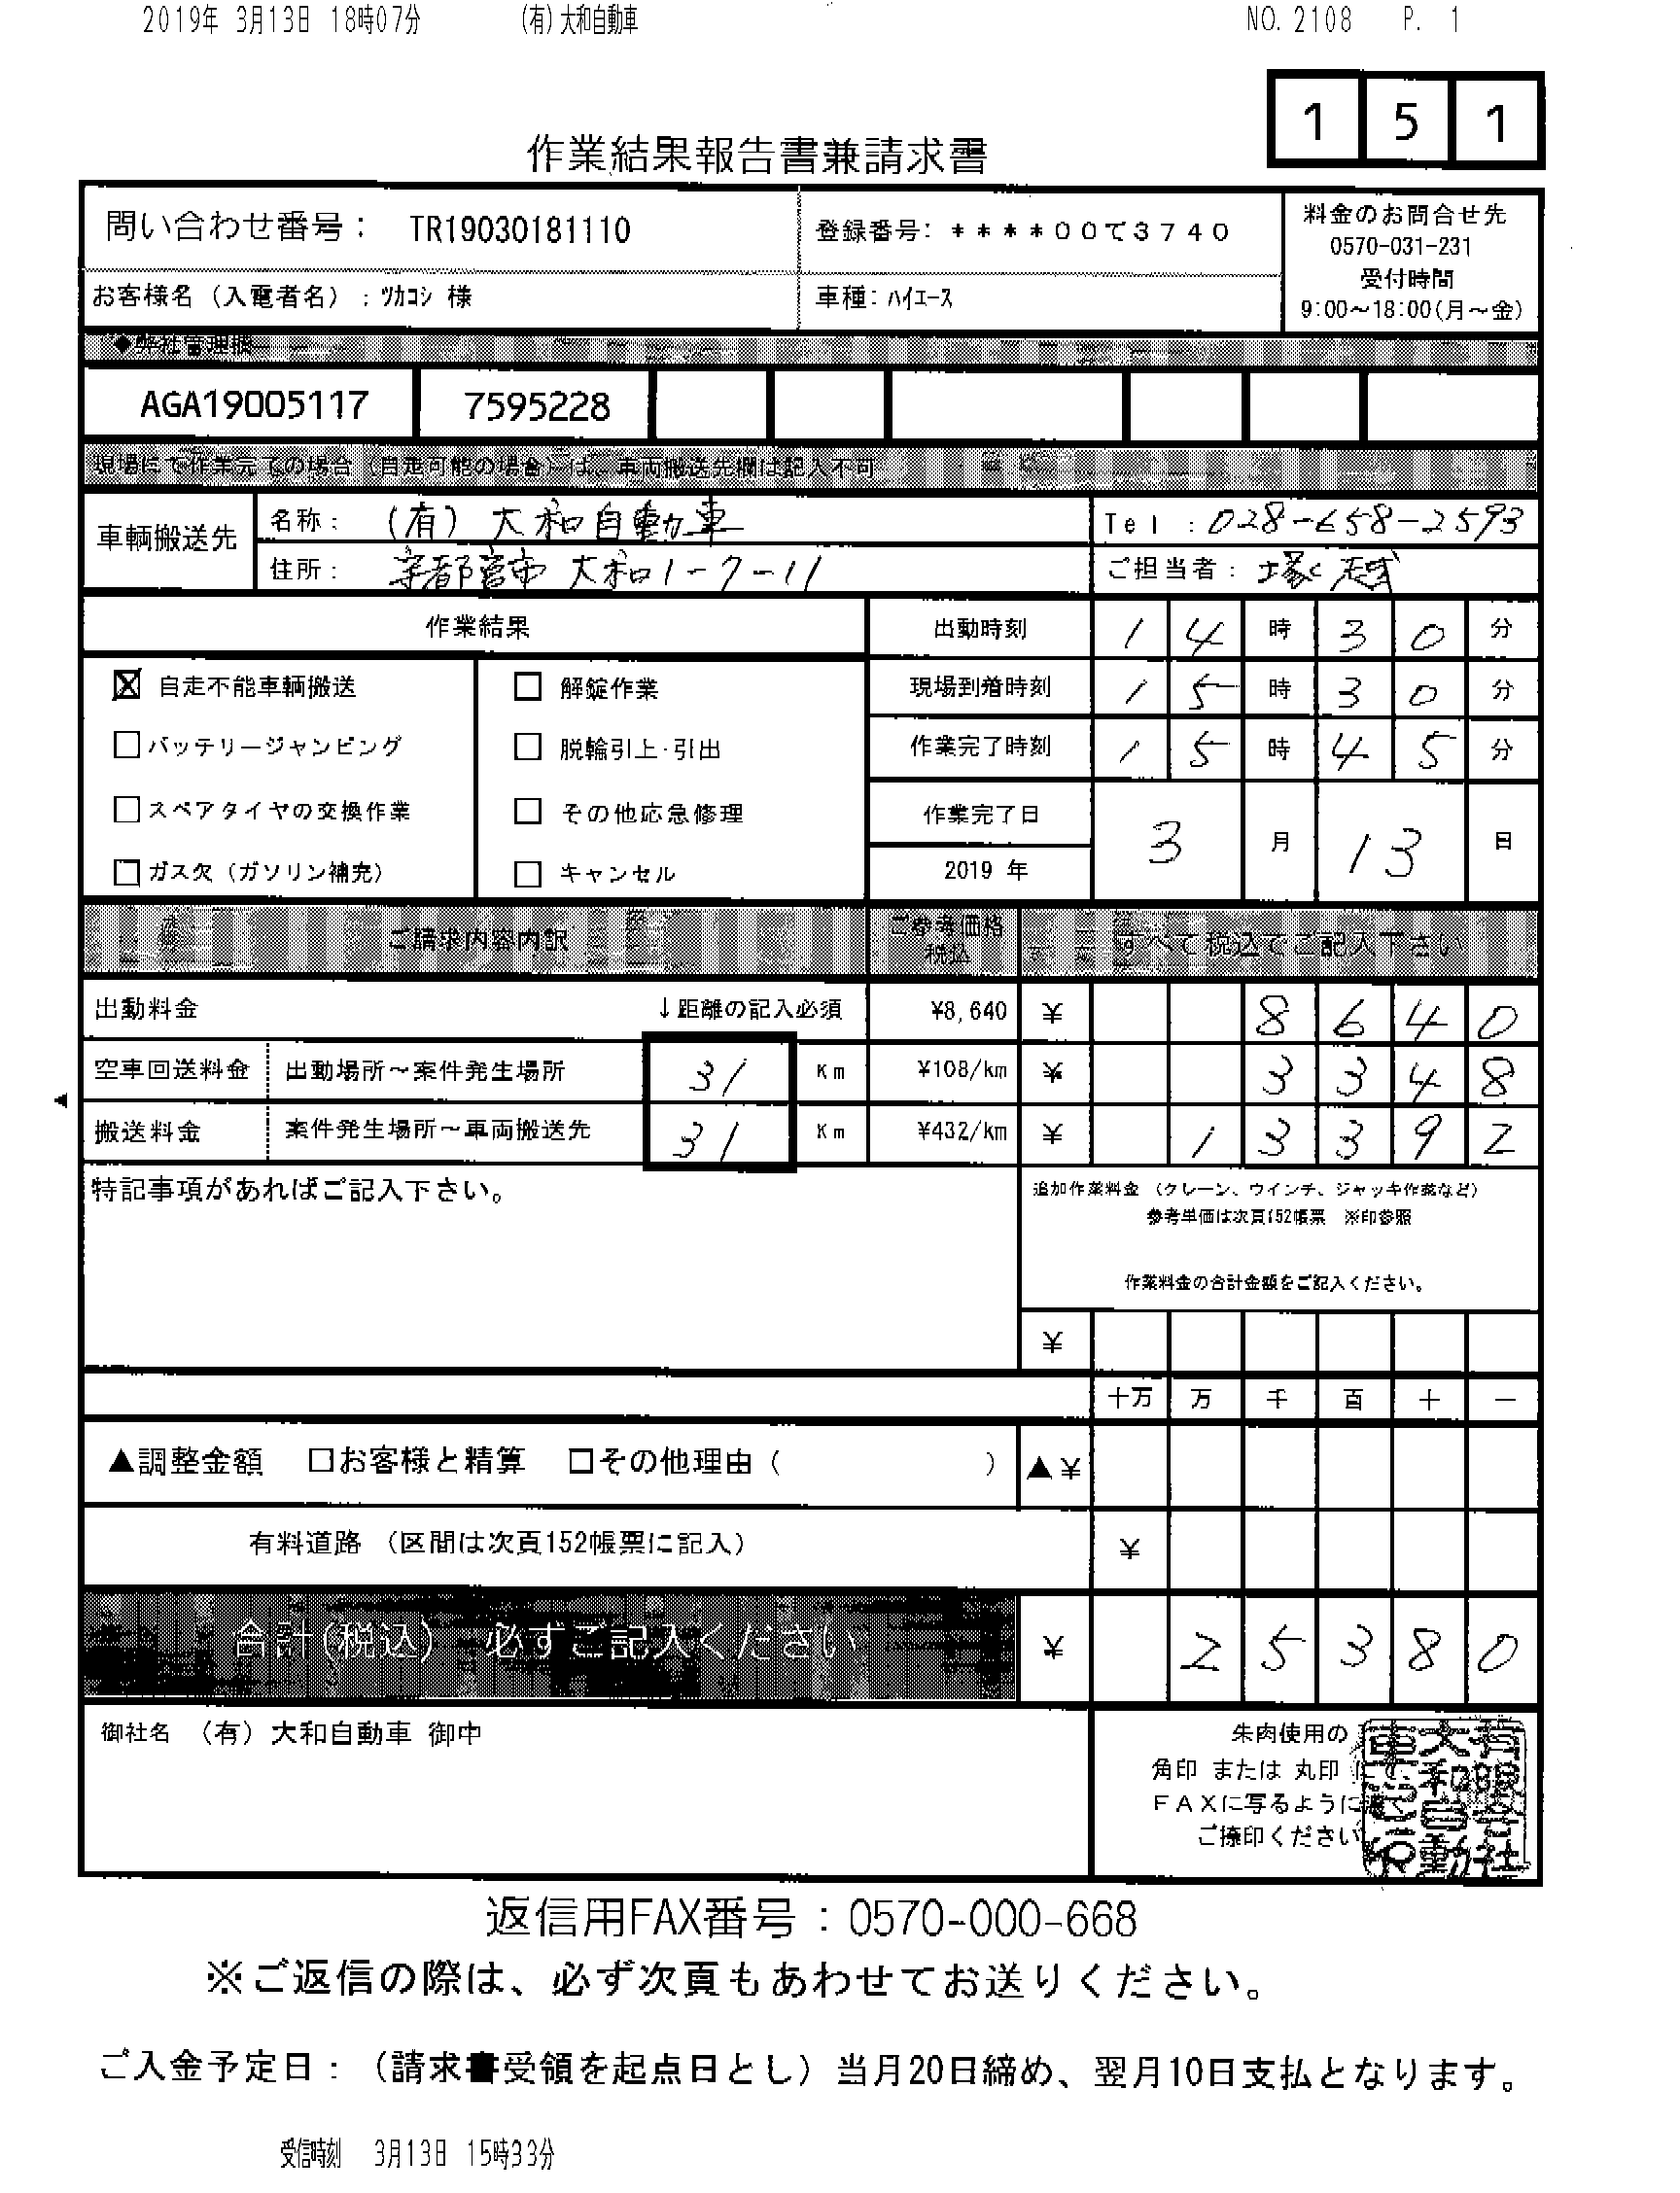 2019年 3月13日 18時07分 (有)大和自動車 NO. 2108 P. 1
1 5 1
作業結果報告書兼請求書
問い合わせ番号： TR19030181110
登録番号：＊＊＊＊００て３７４０
料金のお問合せ先
0570-031-231
受付時間
9:00～18:00(月～金)
お客様名（入電者名）：ﾂｶｺｼ 様
車種：ﾊｲｴｰｽ
◆弊社管理欄
AGA19005117 7595228
現場にて作業完了の場合（自走可能の場合）は、車両搬送先欄は記入不可
車輌搬送先
名称： (有) 大和自動車
Tel ：028-658-2593
住所： 宇都宮市 大和1-7-11
ご担当者：塚越
作業結果
出動時刻 14 時 30 分
☒ 自走不能車輌搬送 □ 解錠作業
現場到着時刻 15 時 30 分
□ バッテリージャンピング □ 脱輪引上・引出
作業完了時刻 15 時 45 分
□ スペアタイヤの交換作業 □ その他応急修理
作業完了日
3 月 13 日
□ ガス欠（ガソリン補充） □ キャンセル
2019 年
ご請求内容内訳 ご参考価格 税込 すべて税込でご記入下さい
出動料金 ↓距離の記入必須 ¥8,640 ¥ 8640
空車回送料金 出動場所～案件発生場所 31 Km ¥108/km ¥ 3348
搬送料金 案件発生場所～車両搬送先 31 Km ¥432/km ¥ 13392
特記事項があればご記入下さい。
追加作業料金 （クレーン、ウインチ、ジャッキ作業など）
参考単価は次頁152帳票 ※印参照
作業料金の合計金額をご記入ください。
¥
十万 万 千 百 十 一
▲調整金額 □お客様と精算 □その他理由（ ） ▲¥
有料道路 （区間は次頁152帳票に記入） ¥
合計(税込) 必ずご記入ください ¥ 25380
御社名 （有）大和自動車 御中
朱肉使用の
角印 または 丸印 にて、
ＦＡＸに写るように濃く
ご捺印ください
返信用FAX番号：0570-000-668
※ご返信の際は、必ず次頁もあわせてお送りください。
ご入金予定日：（請求書受領を起点日とし）当月20日締め、翌月10日支払となります。
受信時刻 3月13日 15時33分